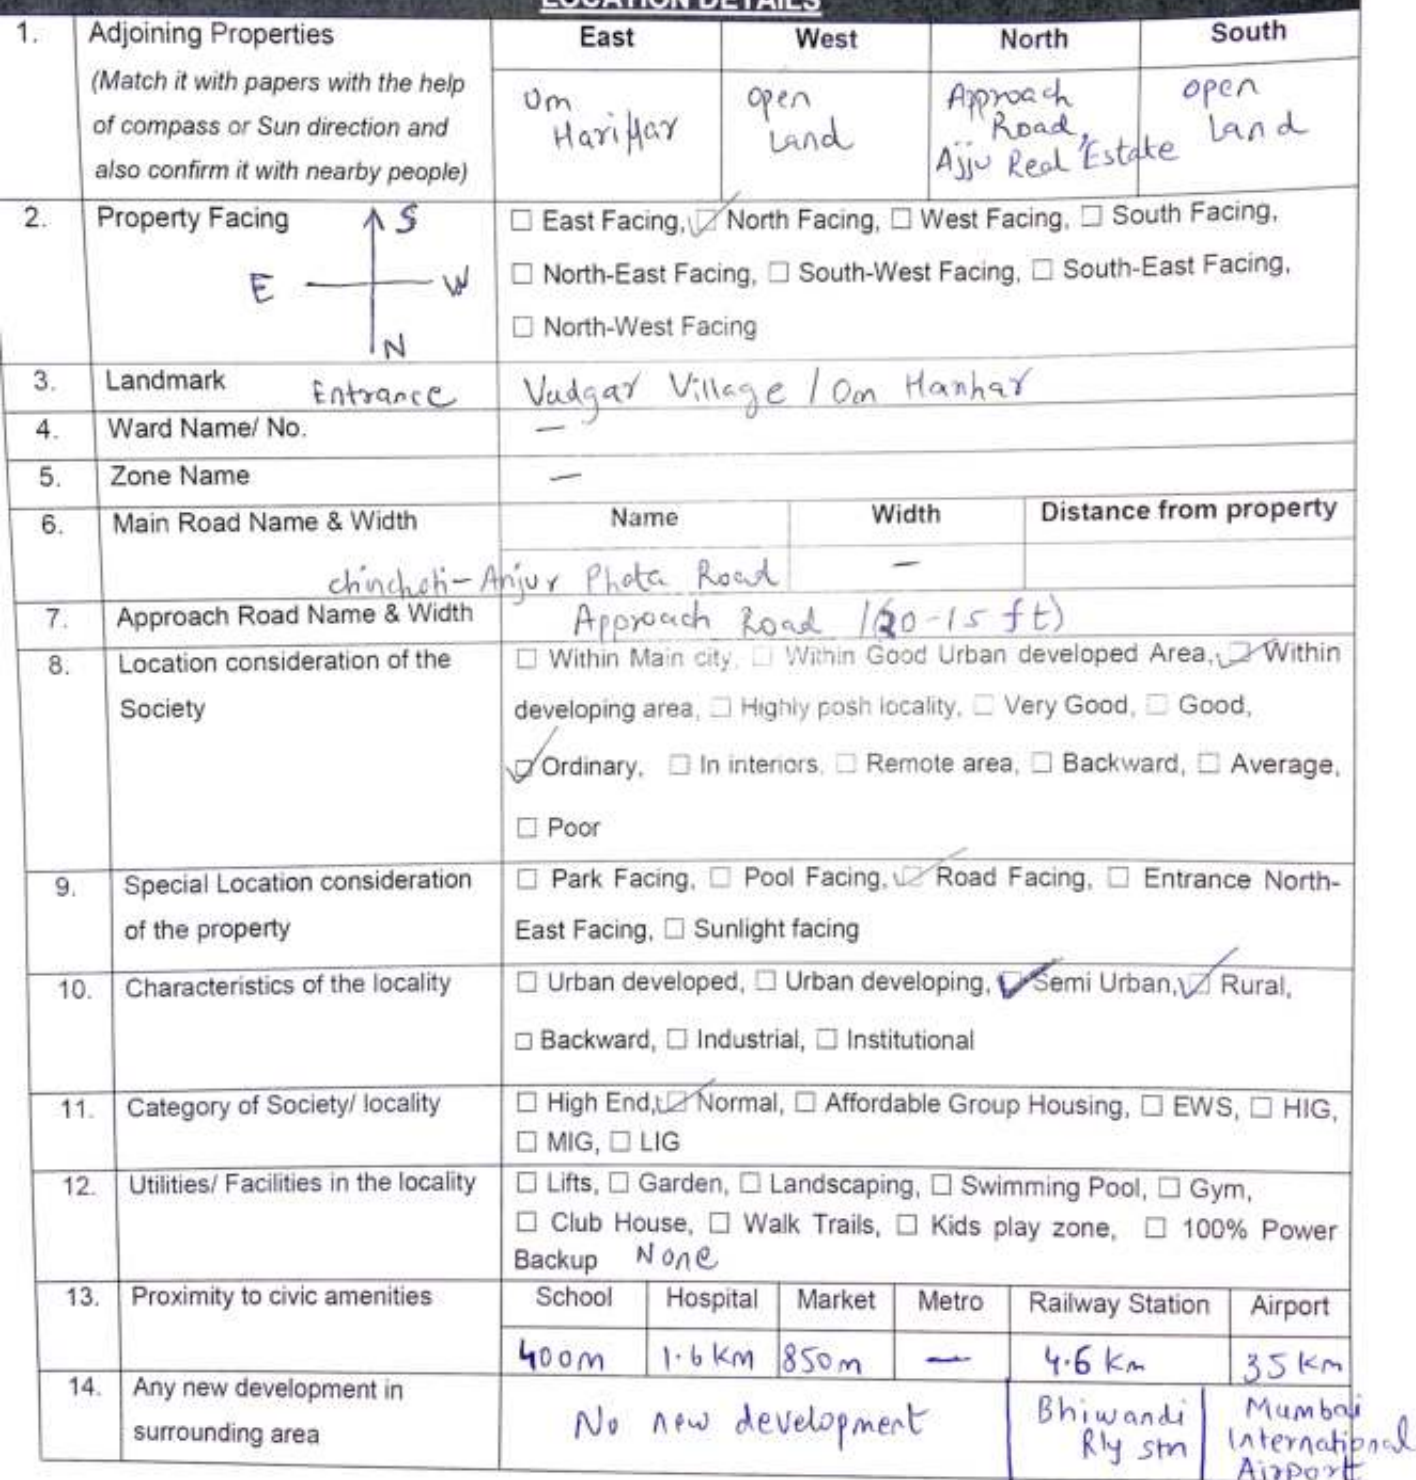 LOCATION DETAILS
1. Adjoining Properties East West North South
(Match it with papers with the help of compass or Sun direction and also confirm it with nearby people)
Om HariHar
open Land
Approach Road, Ajju Real Estate
open Land
2. Property Facing
S
E W
N
☐ East Facing, ☑ North Facing, ☐ West Facing, ☐ South Facing,
☐ North-East Facing, ☐ South-West Facing, ☐ South-East Facing,
☐ North-West Facing
3. Landmark Entrance Vadgar Village / Om Harihar
4. Ward Name/ No. —
5. Zone Name —
6. Main Road Name & Width Name Width Distance from property
chinchoti-Anjur Phata Road —
7. Approach Road Name & Width Approach Road /(20-15 ft)
8. Location consideration of the Society
☐ Within Main city, ☐ Within Good Urban developed Area, ☑ Within
developing area, ☐ Highly posh locality, ☐ Very Good, ☐ Good,
☑ Ordinary, ☐ In interiors, ☐ Remote area, ☐ Backward, ☐ Average,
☐ Poor
9. Special Location consideration of the property
☐ Park Facing, ☐ Pool Facing, ☑ Road Facing, ☐ Entrance North-
East Facing, ☐ Sunlight facing
10. Characteristics of the locality
☐ Urban developed, ☐ Urban developing, ☑ Semi Urban, ☑ Rural,
☐ Backward, ☐ Industrial, ☐ Institutional
11. Category of Society/ locality
☐ High End, ☑ Normal, ☐ Affordable Group Housing, ☐ EWS, ☐ HIG,
☐ MIG, ☐ LIG
12. Utilities/ Facilities in the locality
☐ Lifts, ☐ Garden, ☐ Landscaping, ☐ Swimming Pool, ☐ Gym,
☐ Club House, ☐ Walk Trails, ☐ Kids play zone, ☐ 100% Power
Backup None
13. Proximity to civic amenities School Hospital Market Metro Railway Station Airport
400m 1.6 Km 850m — 4.6 Km 35 Km
14. Any new development in surrounding area
No new development
Bhiwandi Rly stn
Mumbai International Airport